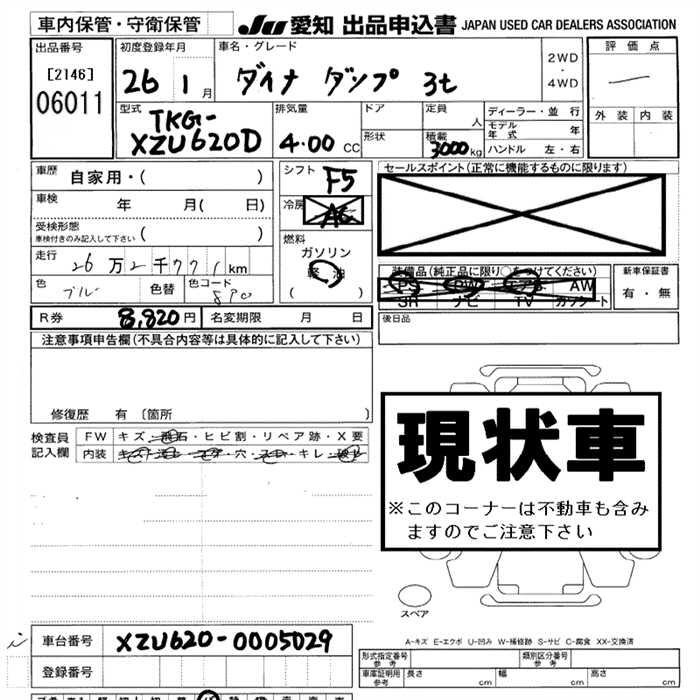 車内保管・守衛保管
JU 愛知 出品申込書 JAPAN USED CAR DEALERS ASSOCIATION
出品番号
[2146]
06011
初度登録年月
26 1月
車名・グレード
ダイナ ダンプ 3t
2WD
・
4WD
評価点
外装 内装
型式
TKG-
XZU620D
排気量
4.00 CC
ドア
形状
定員
人
積載
3000kg
ディーラー・並行
モデル年式 年
ハンドル 左・右
車歴 自家用・( )
車検 年 月( 日)
受検形態
車検付きのみ記入して下さい ( )
走行 26万2千771km
色 ブル 色替 色コード
R券 8,820円 名変期限 月 日
シフト F5
冷房 AC
燃料
ガソリン
軽油
( )
セールスポイント(正常に機能するものに限ります)
装備品(純正品に限り○をつけてください)
PS PW エアB AW
SR ナビ TV カワシート
新車保証書
有・無
後日品
注意事項申告欄(不具合内容等は具体的に記入して下さい)
修復歴 有 〔箇所 〕
検査員
記入欄
FW キズ・飛石・ヒビ割・リペア跡・X要
内装
現状車
※このコーナーは不動車も含み
ますのでご注意下さい
スペア
A-キズ E-エクボ U-凹み W-補修跡 S-サビ C-腐食 XX-交換済
車台番号 XZU620-0005029
登録番号
形式指定番号
参考
類別区分番号
参考
車庫証明用
参考
長さ cm 幅 cm 高さ cm